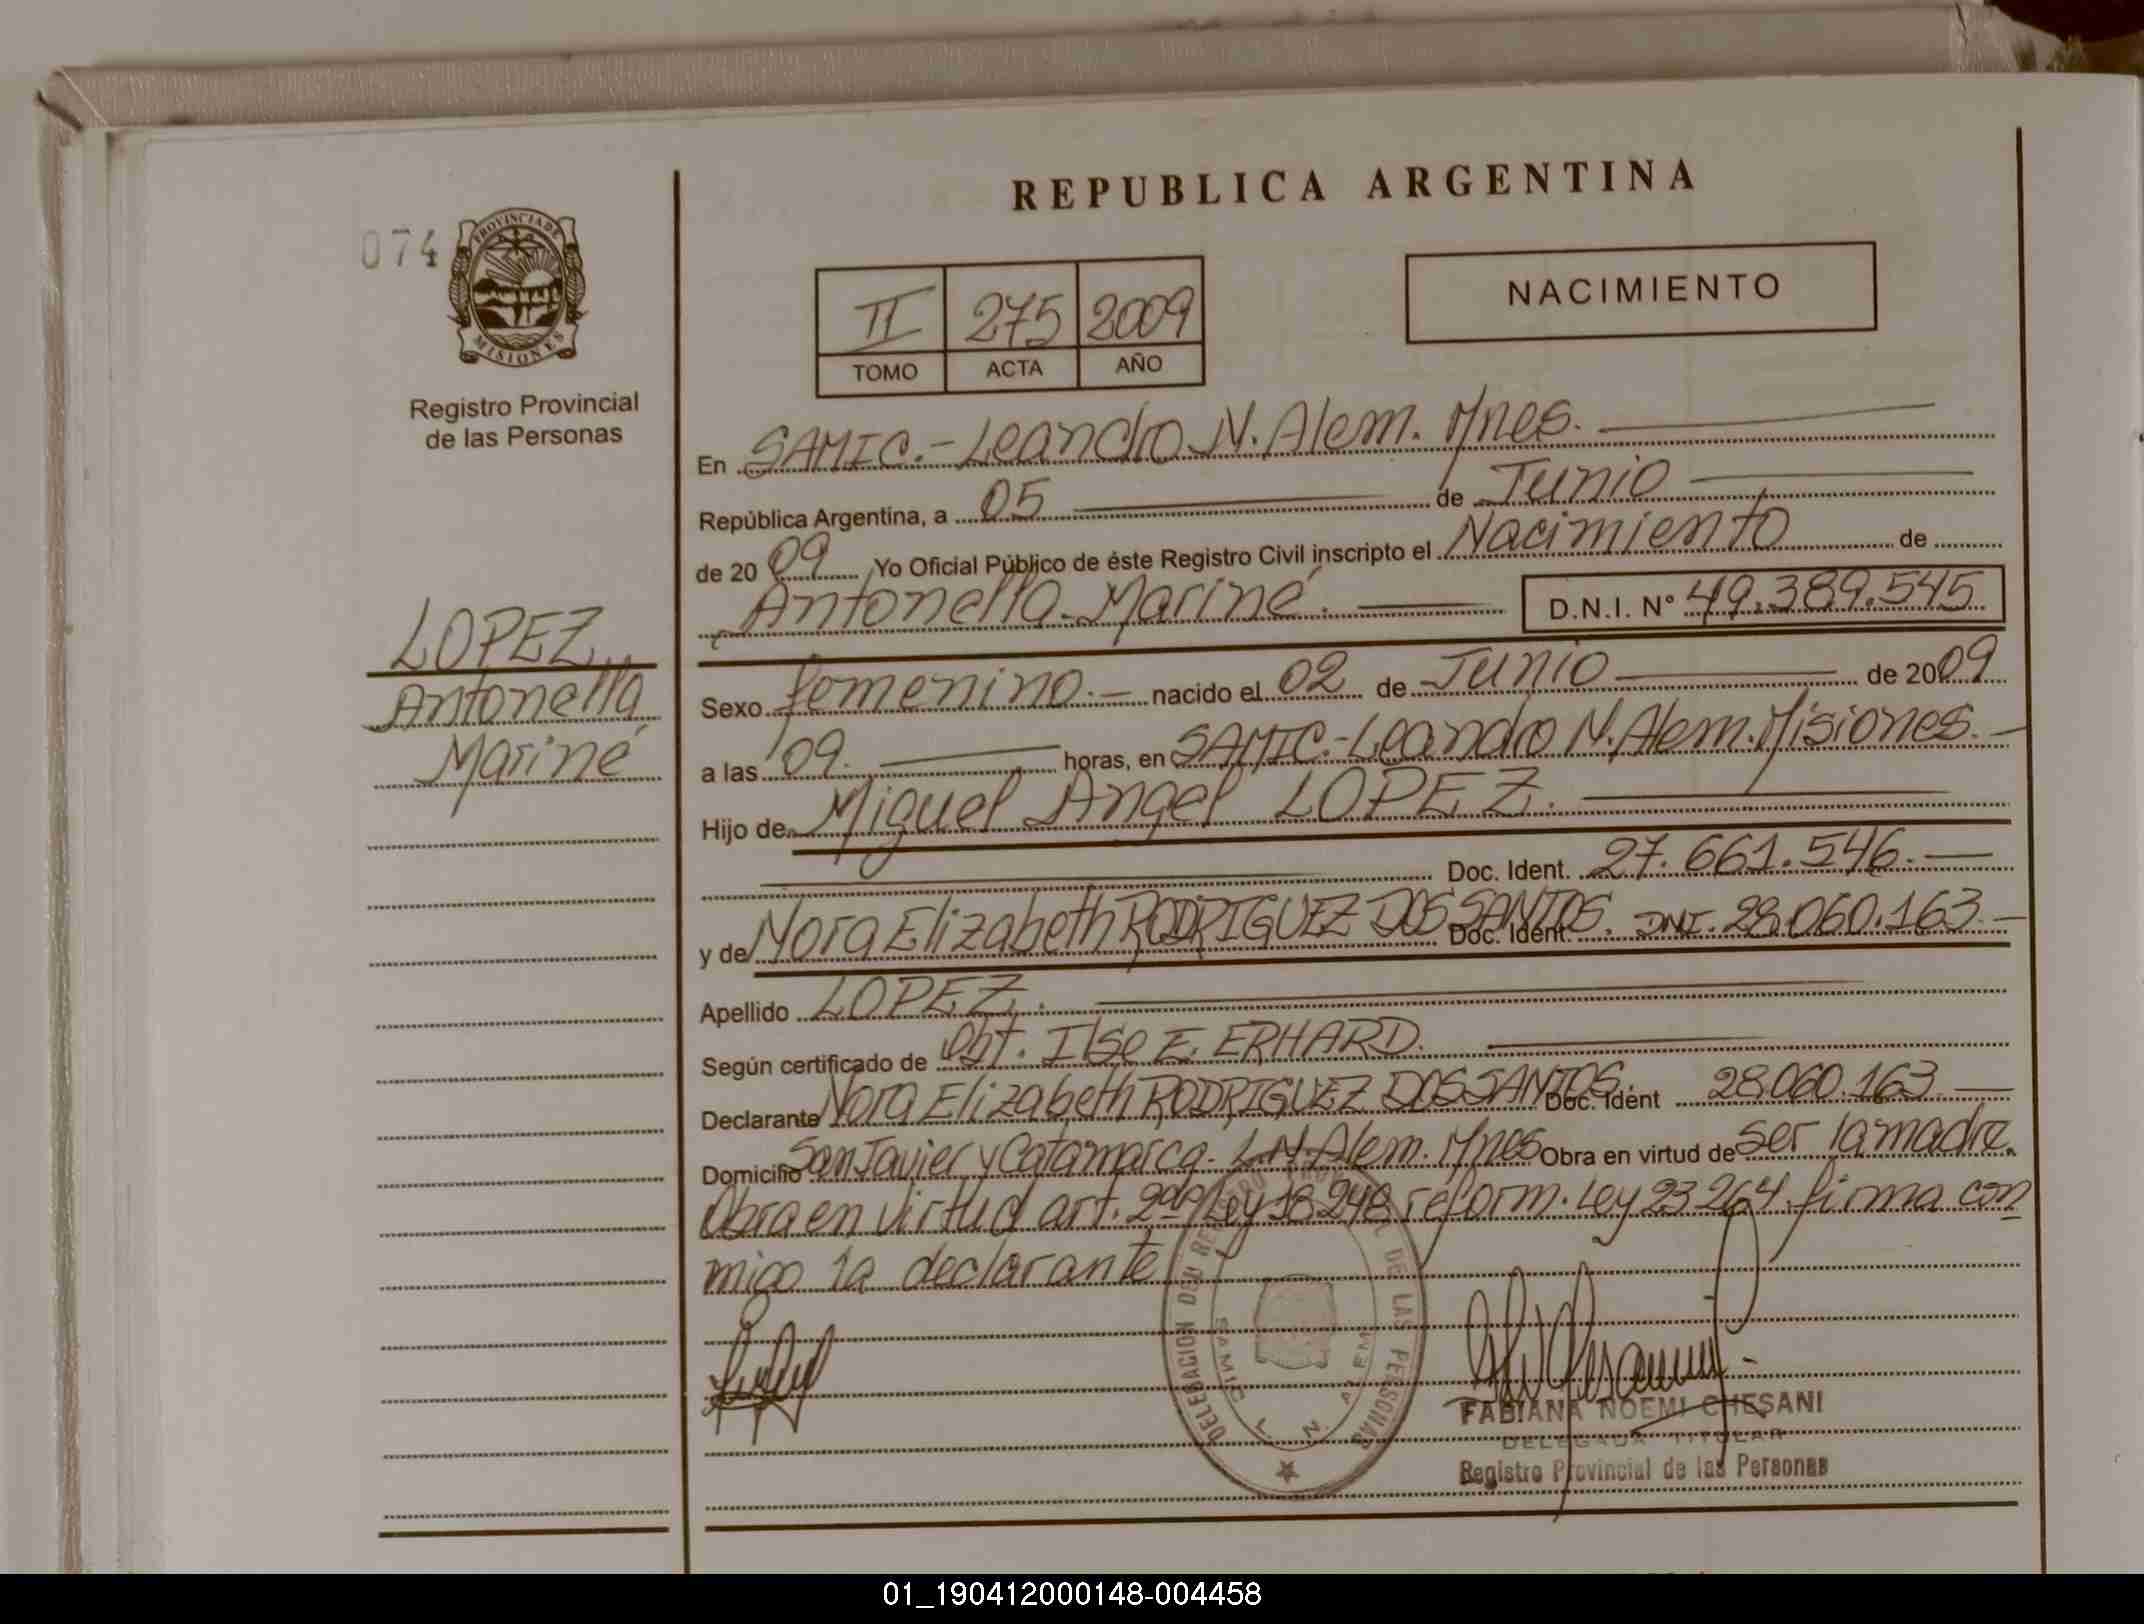 REPUBLICA ARGENTINA
074
PROVINCIA DE
MISIONES
Registro Provincial
de las Personas
II 275 2009
TOMO ACTA AÑO
NACIMIENTO
LOPEZ
Antonella
Mariné
En SAMIC.- Leandro N. Alem. Mnes.
República Argentina, a 05 de Junio
de 2009 Yo Oficial Público de éste Registro Civil inscripto el Nacimiento de
Antonella Mariné. D.N.I. N° 49.389.545
Sexo femenino.- nacido el 02 de Junio de 2009
a las 09. horas, en SAMIC.- Leandro N. Alem. Misiones.-
Hijo de Miguel Angel LOPEZ.
Doc. Ident. 27.661.546.-
y de Nora Elizabeth RODRIGUEZ DOS SANTOS. Doc. Ident. DNI. 28.060.163.-
Apellido LOPEZ.
Según certificado de Obt. Ilse E. ERHARD.
Declarante Nora Elizabeth RODRIGUEZ DOS SANTOS. Doc. Ident 28.060.163.-
Domicilio San Javier y Catamarca. L.N. Alem. Mnes Obra en virtud de ser la madre.
Obra en virtud art. 2do Ley 18248 reform. Ley 23264. firma con
migo la declarante
DELEGACION DEL REGISTRO PROVINCIAL DE LAS PERSONAS
SAMIC L. N. ALEM
FABIANA NOEMI CHESANI
DELEGADA TITULAR
Registro Provincial de las Personas
01_190412000148-004458